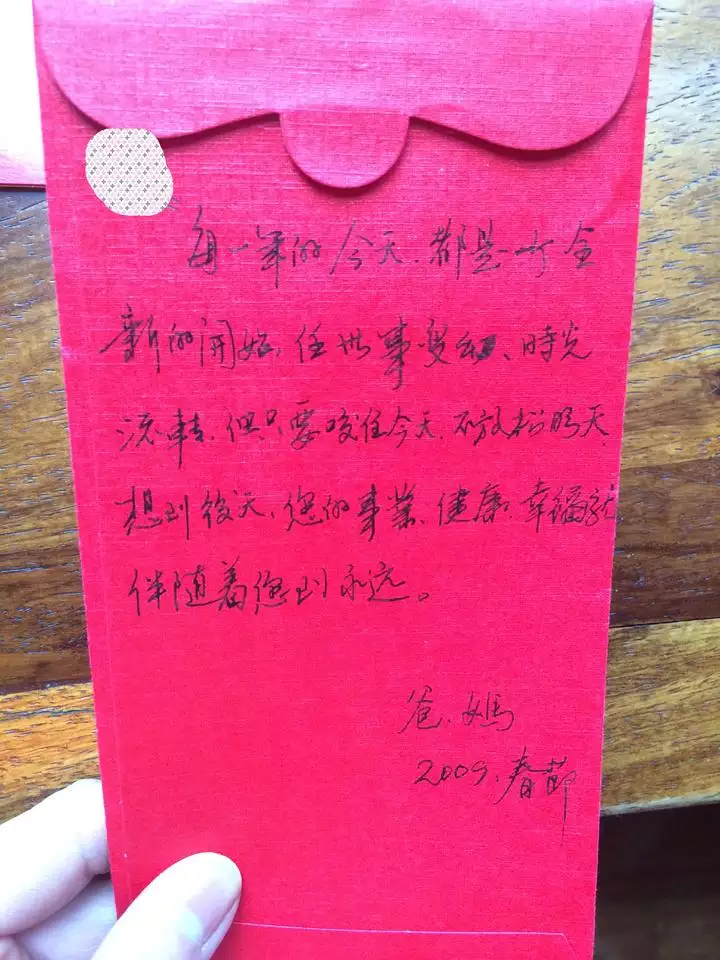 每一年的今天.都是一个全
新的開始,任世事變幻、時光
流轉.但只要咬住今天.不放松明天.
想到後天,您的事業、健康.幸福就
伴随着您到永远。
爸.媽
2009.春節